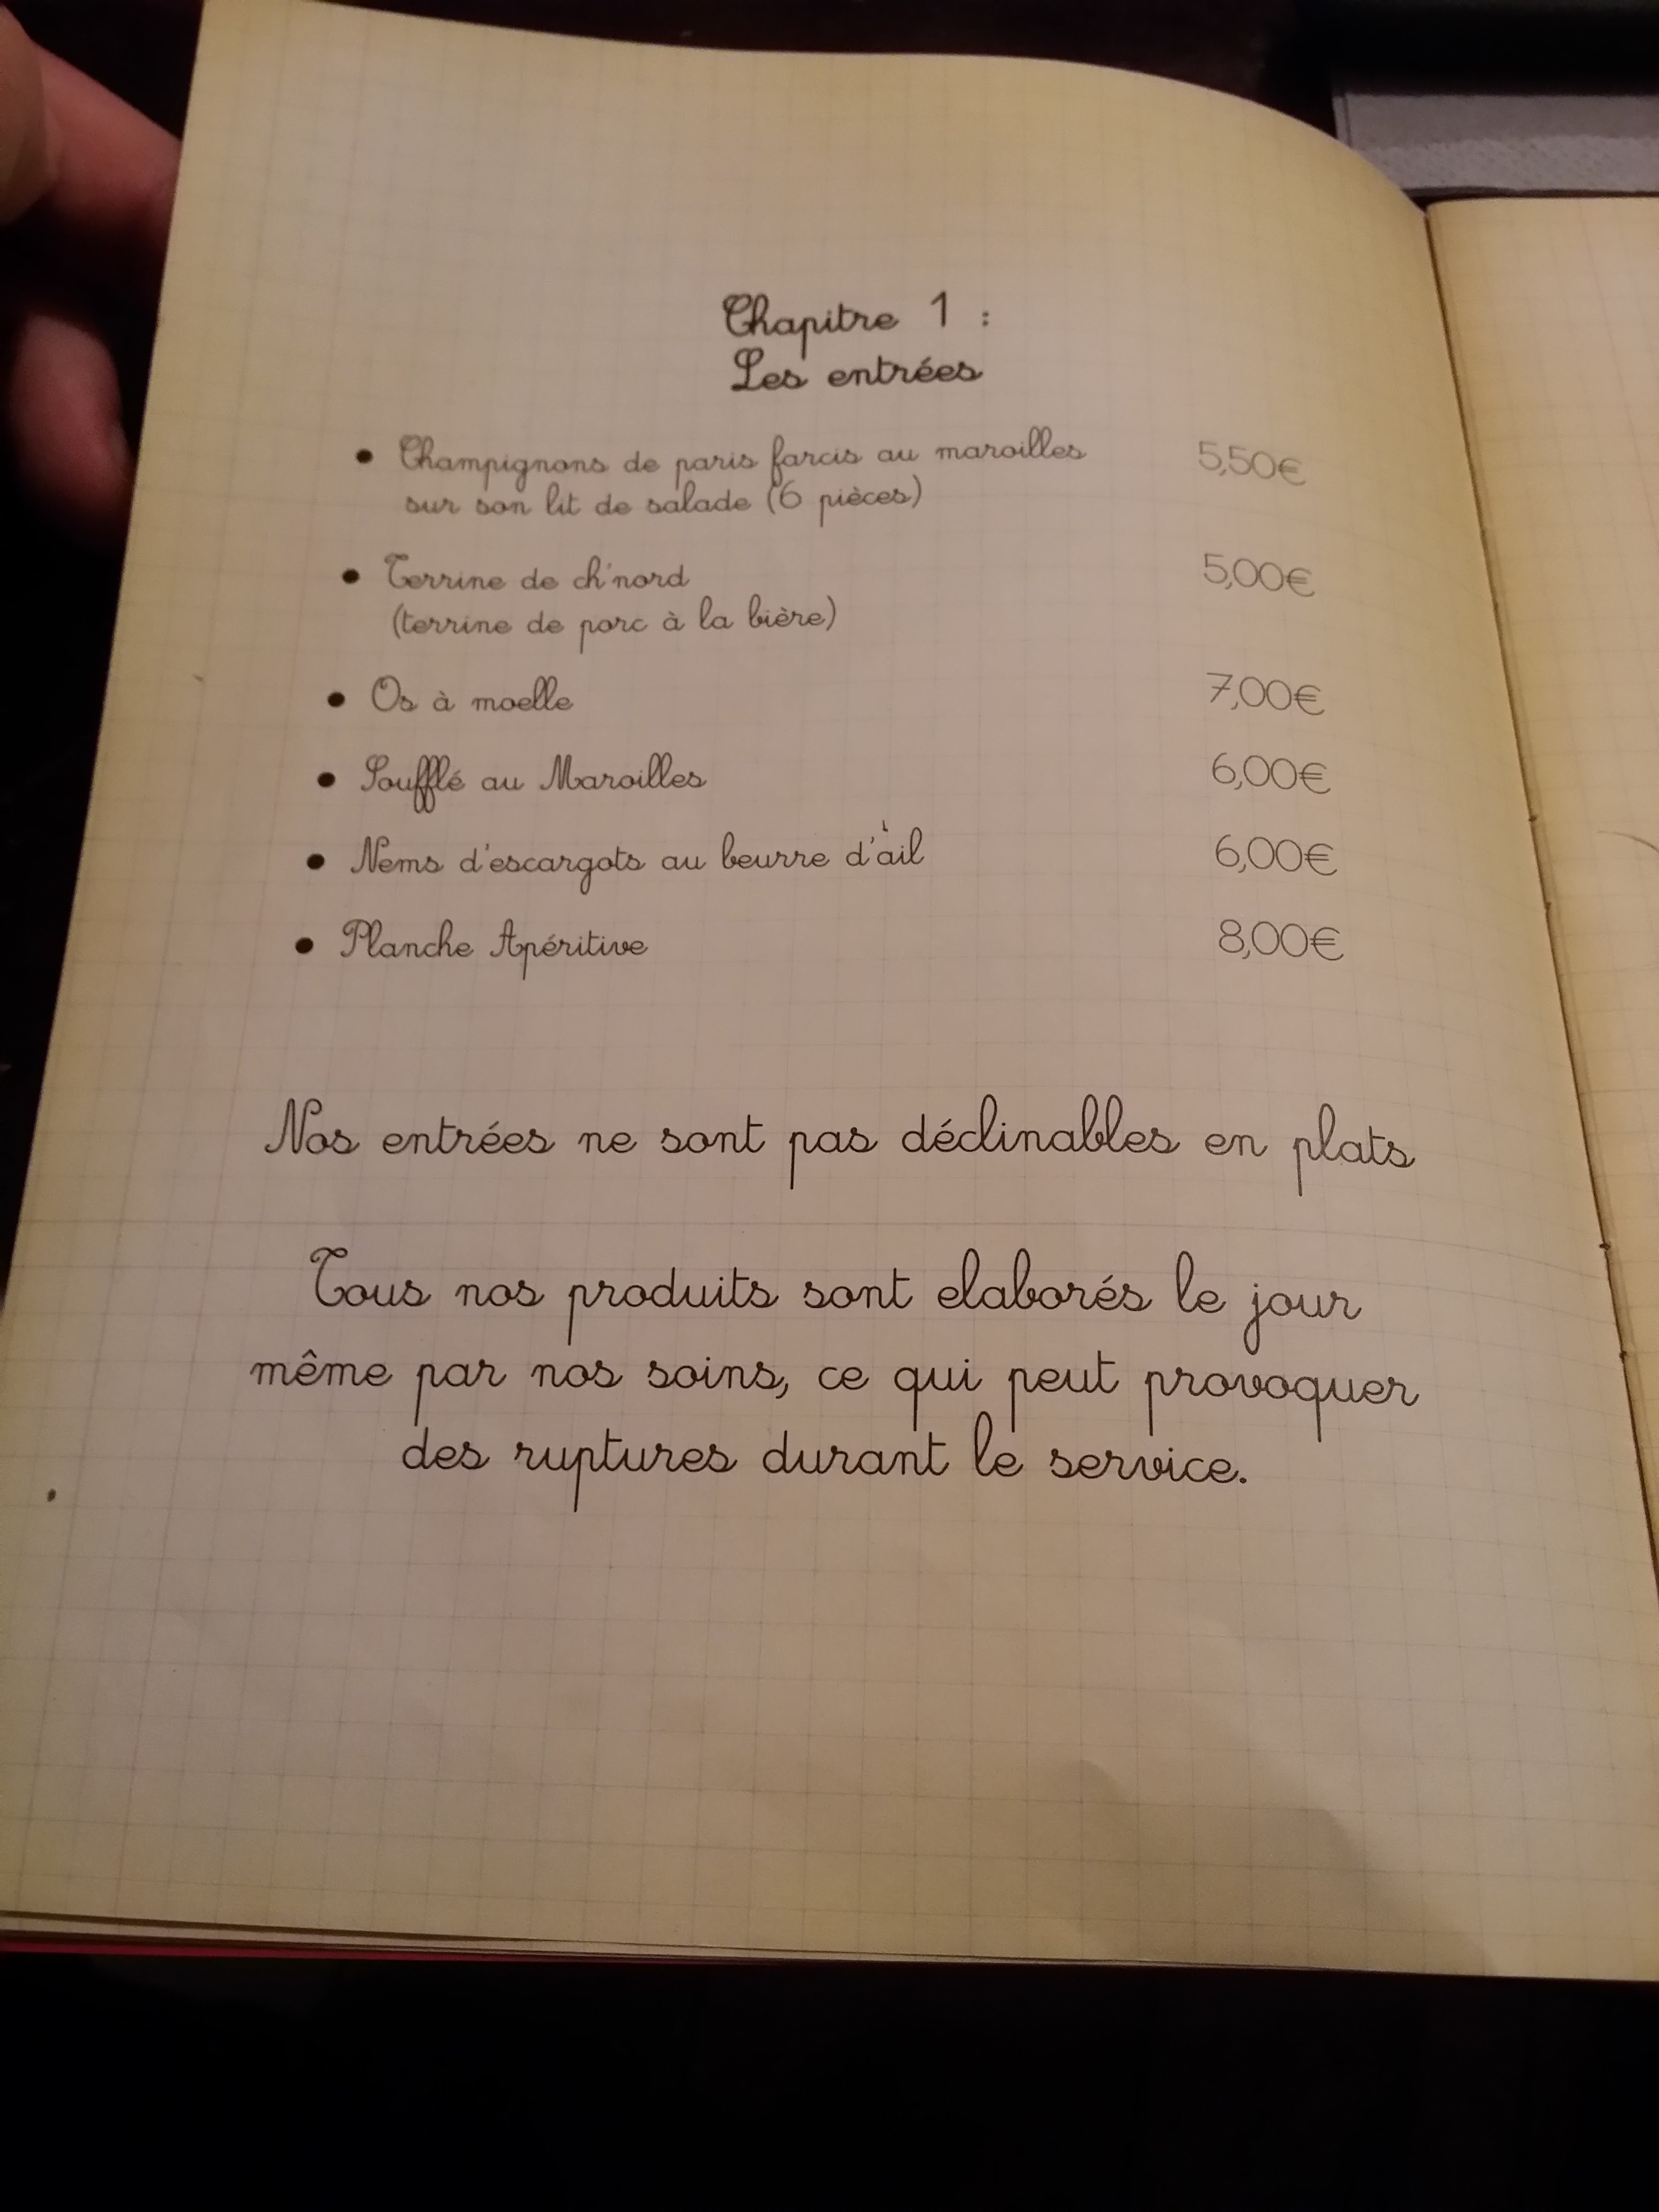 Chapitre 1 :
Les entrées
• Champignons de paris farcis au maroilles 5,50€
sur son lit de salade (6 pièces)
• Terrine de ch'nord 5,00€
(terrine de porc à la bière)
• Os à moelle 7,00€
• Soufflé au Maroilles 6,00€
• Nems d'escargots au beurre d'ail 6,00€
• Planche Apéritive 8,00€
Nos entrées ne sont pas déclinables en plats
Tous nos produits sont elaborés le jour
même par nos soins, ce qui peut provoquer
des ruptures durant le service.